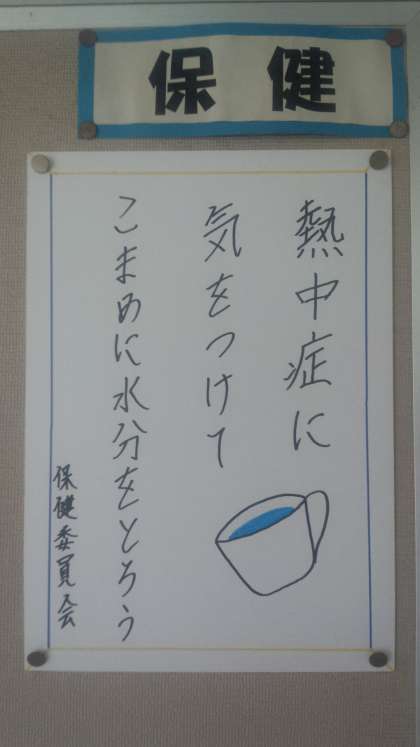 保健
熱中症に
気をつけて
こまめに水分をとろう
保健委員会